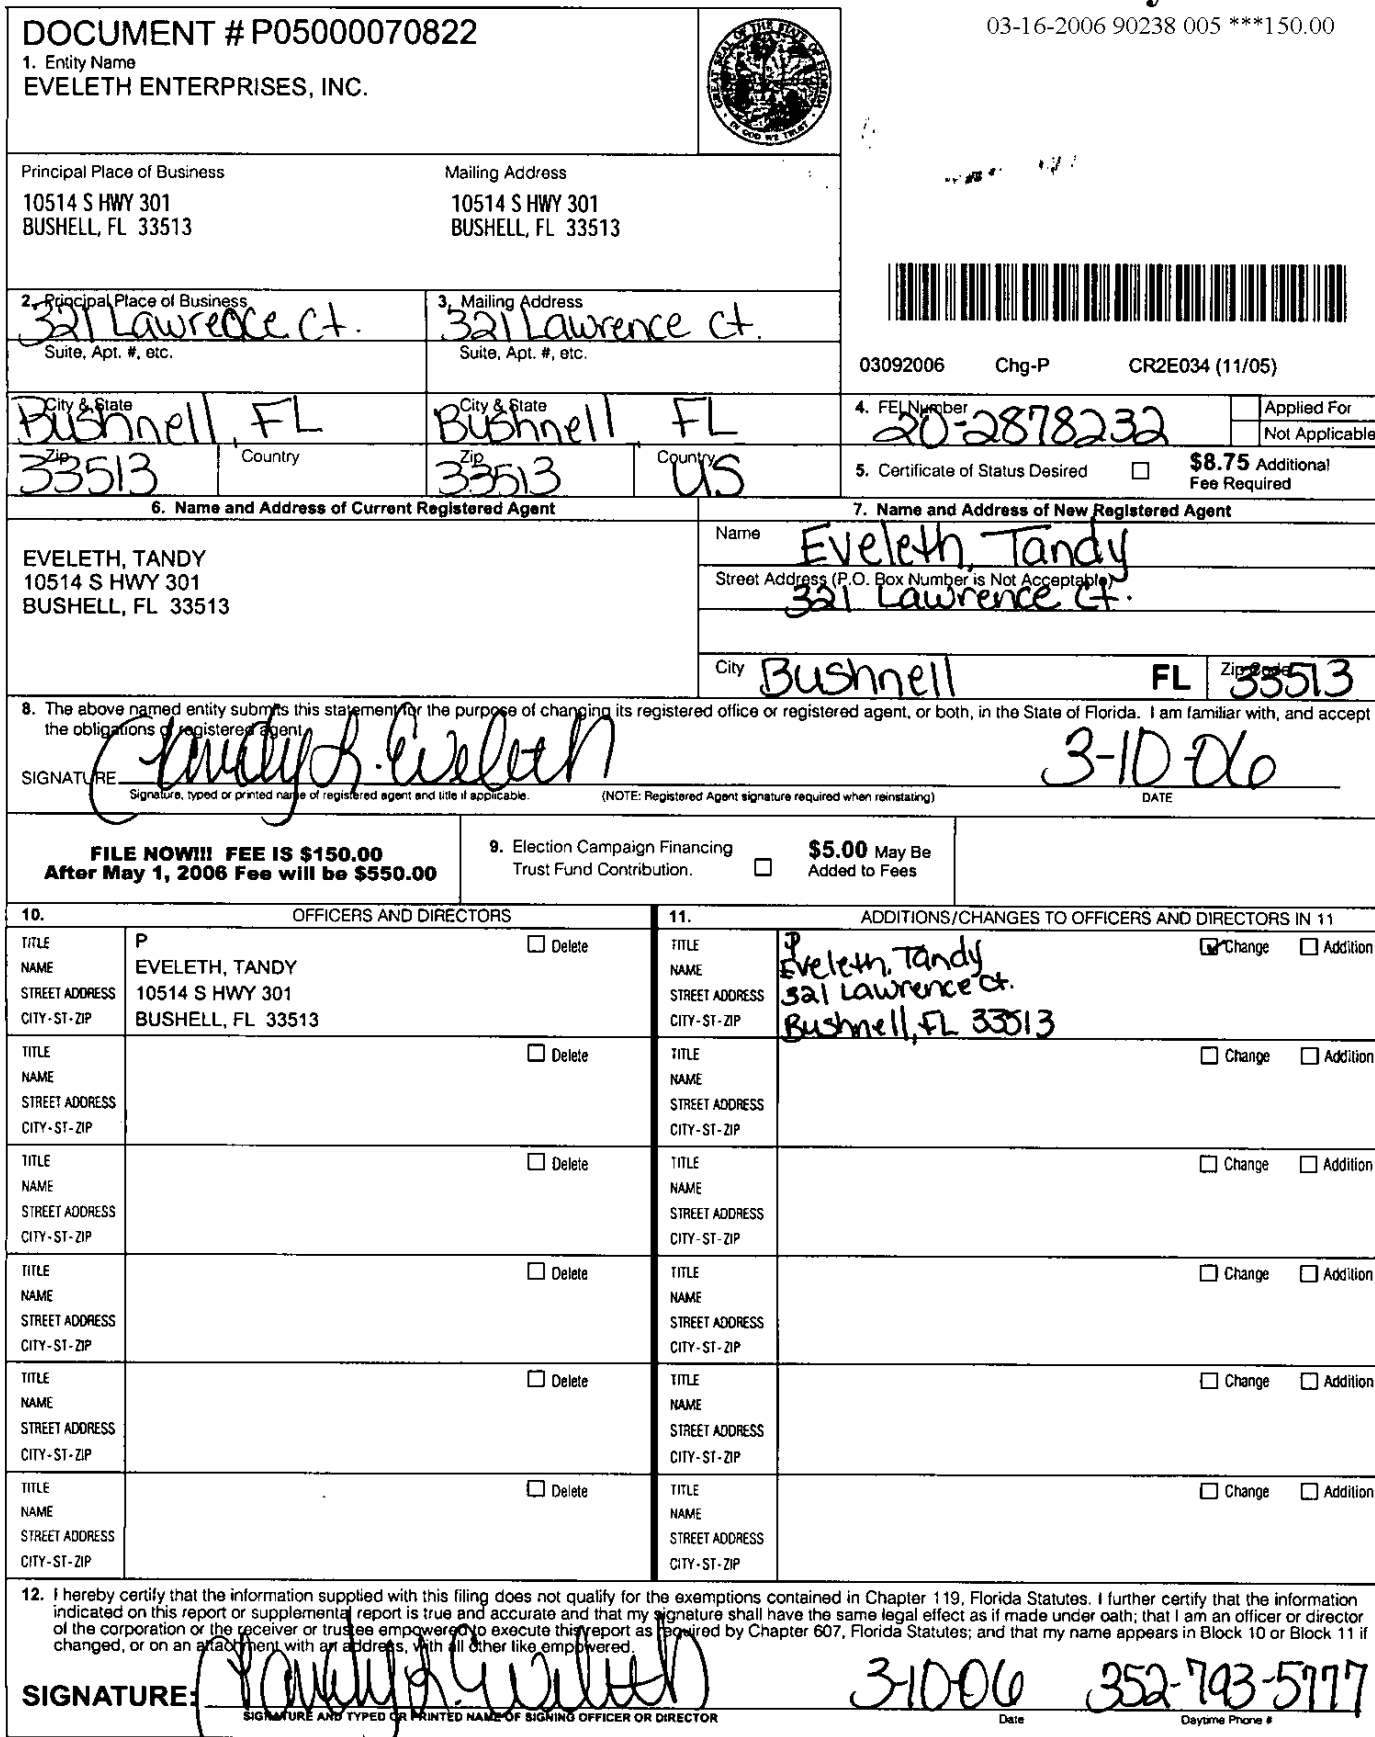 DOCUMENT # P05000070822
1. Entity Name
EVELETH ENTERPRISES, INC.
GREAT SEAL OF THE STATE OF FLORIDA
IN GOD WE TRUST
03-16-2006 90238 005 ***150.00
Principal Place of Business
10514 S HWY 301
BUSHELL, FL 33513
Mailing Address
10514 S HWY 301
BUSHELL, FL 33513
2. Principal Place of Business
321 Lawrence Ct.
Suite, Apt. #, etc.
3. Mailing Address
321 Lawrence Ct.
Suite, Apt. #, etc.
03092006 Chg-P CR2E034 (11/05)
City & State
Bushnell, FL
City & State
Bushnell FL
Zip
33513
Country
Zip
33513
Country
US
4. FEI Number
20-2878232
Applied For
Not Applicable
5. Certificate of Status Desired
$8.75 Additional
Fee Required
6. Name and Address of Current Registered Agent
EVELETH, TANDY
10514 S HWY 301
BUSHELL, FL 33513
7. Name and Address of New Registered Agent
Name
Eveleth, Tandy
Street Address (P.O. Box Number is Not Acceptable)
321 Lawrence Ct.
City Bushnell FL Zip Code 33513
8. The above named entity submits this statement for the purpose of changing its registered office or registered agent, or both, in the State of Florida. I am familiar with, and accept
the obligations of registered agent.
SIGNATURE Tandy L. Eveleth 3-10-06
Signature, typed or printed name of registered agent and title if applicable. (NOTE: Registered Agent signature required when reinstating) DATE
FILE NOW!!! FEE IS $150.00
After May 1, 2006 Fee will be $550.00
9. Election Campaign Financing
Trust Fund Contribution.
$5.00 May Be
Added to Fees
10. OFFICERS AND DIRECTORS
TITLE P Delete
NAME EVELETH, TANDY
STREET ADDRESS 10514 S HWY 301
CITY-ST-ZIP BUSHELL, FL 33513
TITLE Delete
NAME
STREET ADDRESS
CITY-ST-ZIP
TITLE Delete
NAME
STREET ADDRESS
CITY-ST-ZIP
TITLE Delete
NAME
STREET ADDRESS
CITY-ST-ZIP
TITLE Delete
NAME
STREET ADDRESS
CITY-ST-ZIP
TITLE Delete
NAME
STREET ADDRESS
CITY-ST-ZIP
11. ADDITIONS/CHANGES TO OFFICERS AND DIRECTORS IN 11
TITLE P Change Addition
NAME Eveleth, Tandy
STREET ADDRESS 321 Lawrence Ct.
CITY-ST-ZIP Bushnell, FL 33513
TITLE Change Addition
NAME
STREET ADDRESS
CITY-ST-ZIP
TITLE Change Addition
NAME
STREET ADDRESS
CITY-ST-ZIP
TITLE Change Addition
NAME
STREET ADDRESS
CITY-ST-ZIP
TITLE Change Addition
NAME
STREET ADDRESS
CITY-ST-ZIP
TITLE Change Addition
NAME
STREET ADDRESS
CITY-ST-ZIP
12. I hereby certify that the information supplied with this filing does not qualify for the exemptions contained in Chapter 119, Florida Statutes. I further certify that the information
indicated on this report or supplemental report is true and accurate and that my signature shall have the same legal effect as if made under oath; that I am an officer or director
of the corporation or the receiver or trustee empowered to execute this report as required by Chapter 607, Florida Statutes; and that my name appears in Block 10 or Block 11 if
changed, or on an attachment with an address, with all other like empowered.
SIGNATURE: Tandy L. Eveleth 3-10-06 352-793-5777
SIGNATURE AND TYPED OR PRINTED NAME OF SIGNING OFFICER OR DIRECTOR Date Daytime Phone #